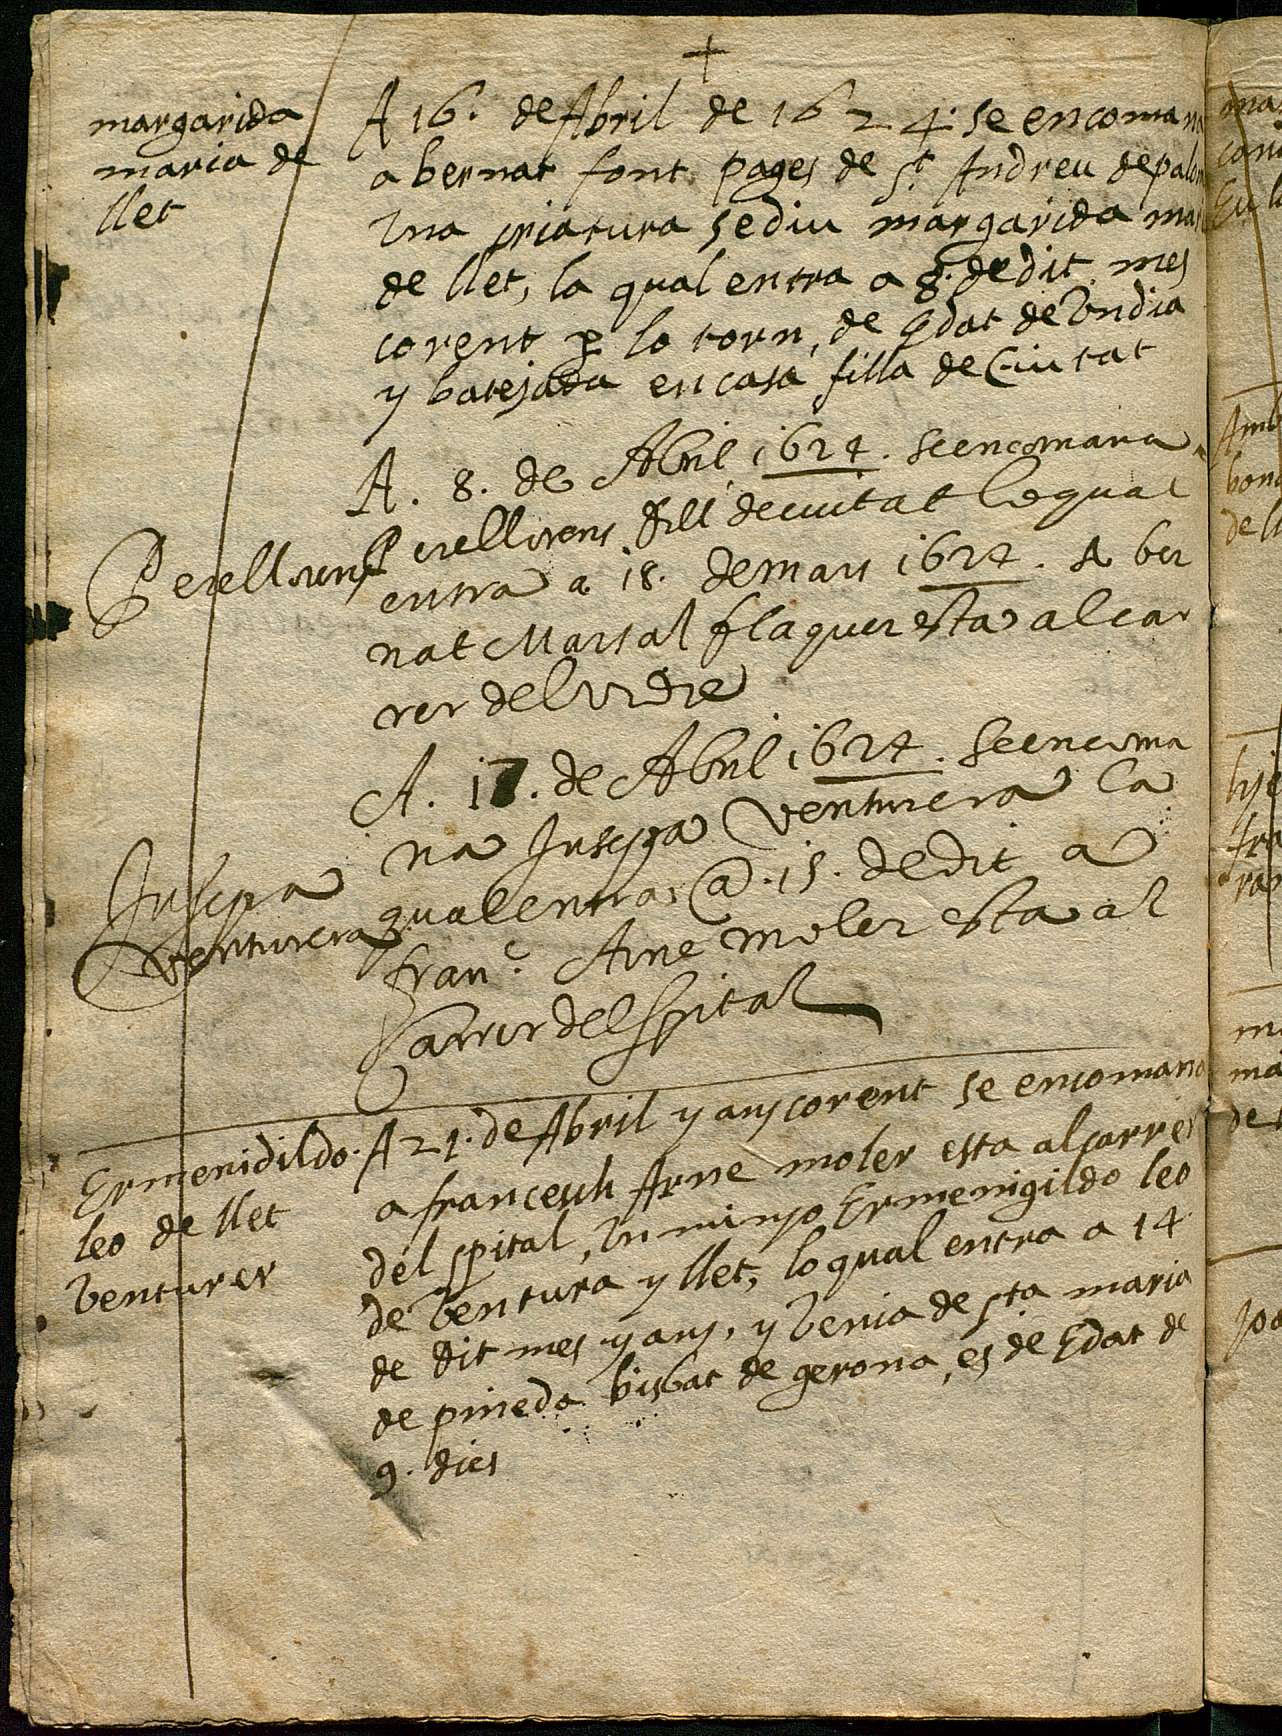 +
margarida
maria de
llet
A 16. de Abril de 1624. se encomana
a bernat font pages de St. Andreu de palom
Una criatura se diu margarida mar
de llet, la qual entra a 8. de dit mes
corent p lo torn, de Edat de Vn dia
y batejada en casa filla de Ciutat
Pere llorens
A. 8. de Abril 1624. se encomana
Pere llorens fill de ciutat lo qual
entra a 18. de mars 1624. A ber
nat Marsal flaquer esta al car
rer del vidre
Jusepa
venturera
A. 17. de Abril 1624. se encoma
na Jusepa Venturera la
qual entra @ 15. de dit a
franc. Arne moler esta al
Carrer del spital
Ermenidildo
leo de llet
Venturer
A 21. de Abril y any corent se encomana
a francesch Arne moler esta al carrer
del spital, Vn minyo Ermenigildo leo
de Ventura y llet, lo qual entra a 14
de dit mes y any, y Venia de sta maria
de pineda bisbat de gerona, es de Edat de
9. dies